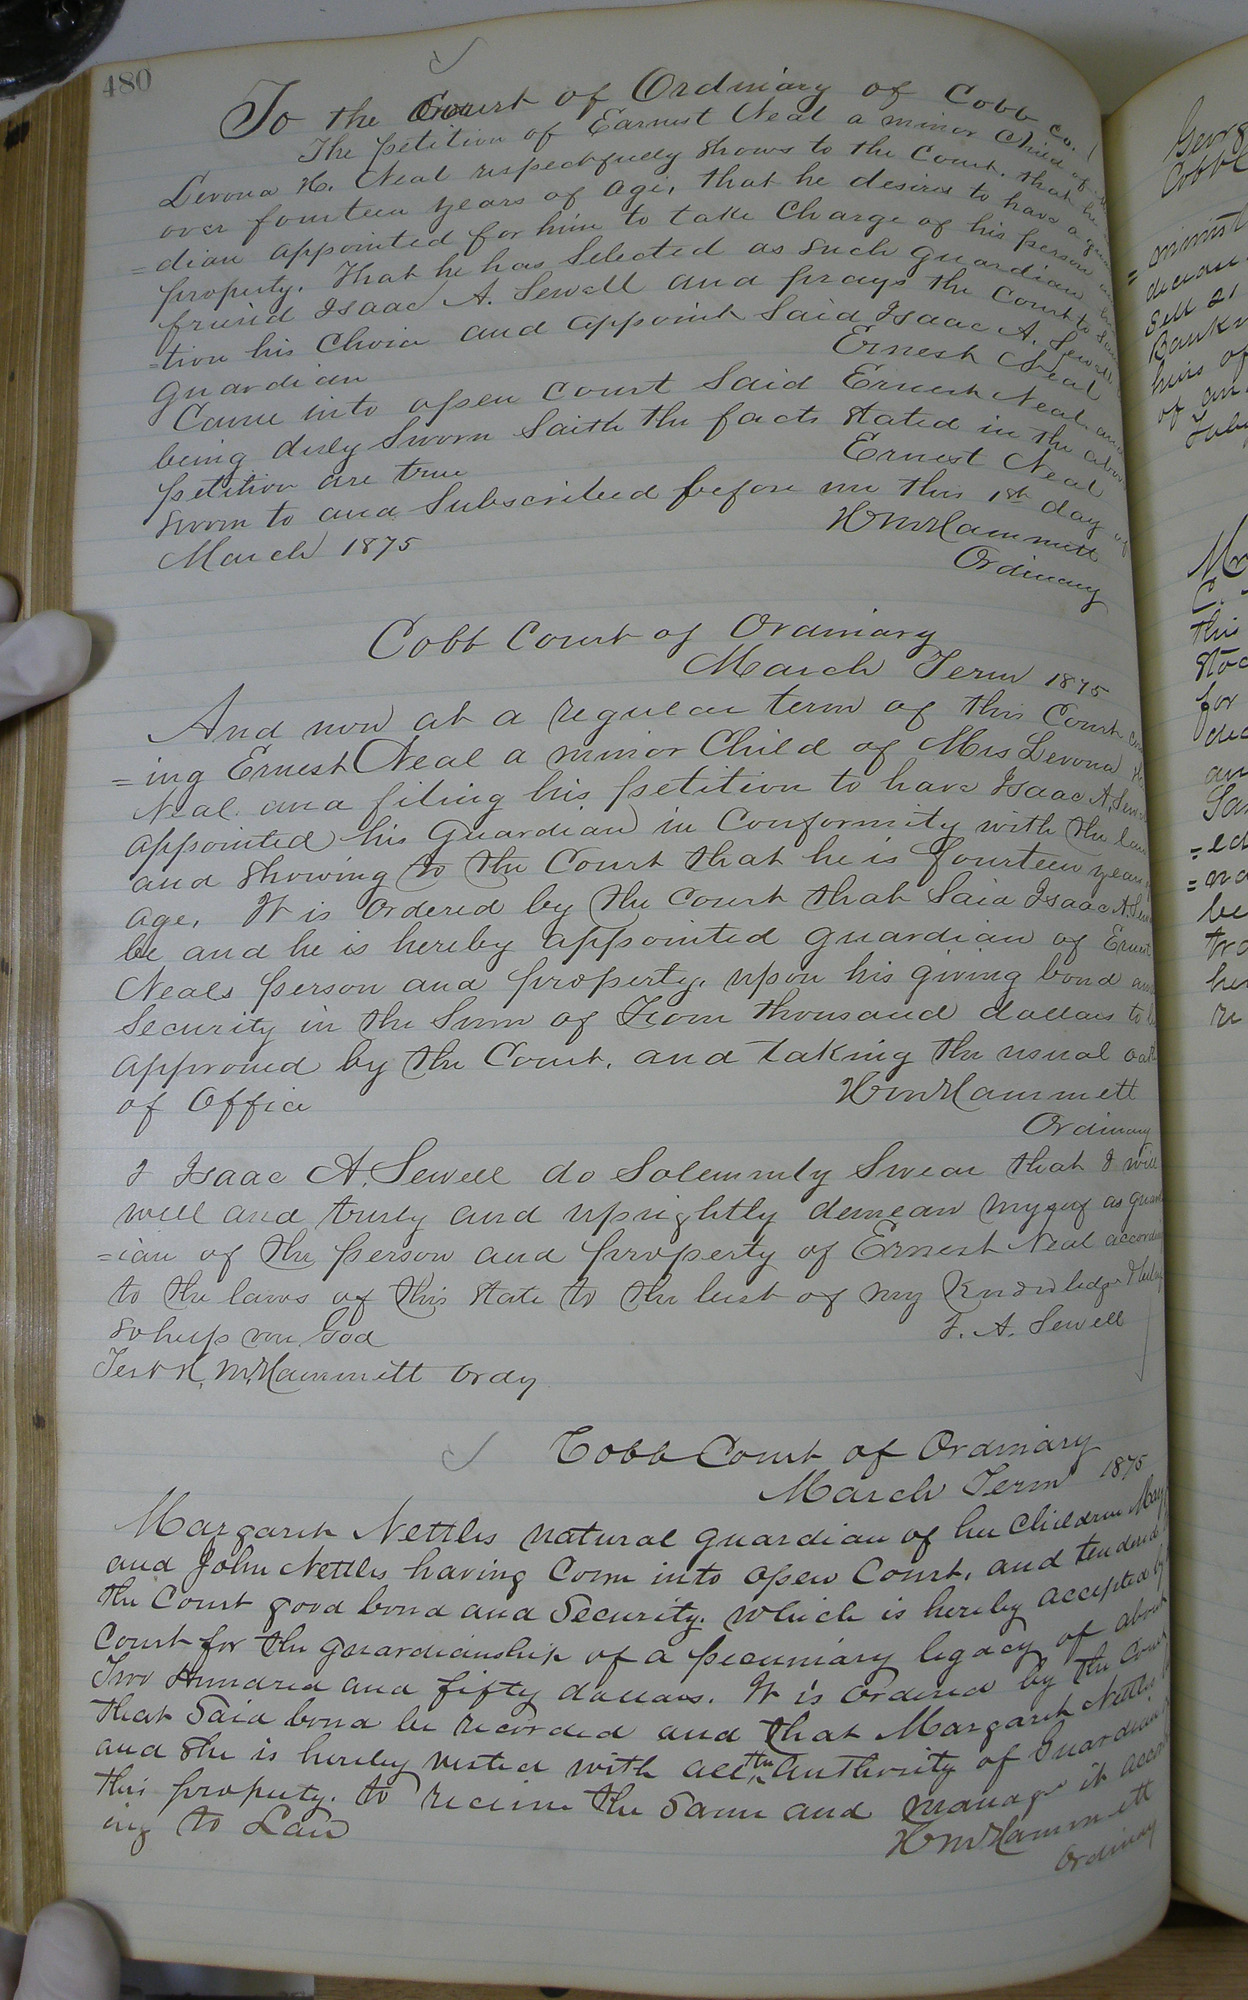 480
To the Court of Ordinary of Cobb Co.
The petition of Earnest Neal a minor Child of
Levona H. Neal respectfully shows to the Court, that he
over fourteen years of age, that he desires to have a guar
=dian appointed for him to take Charge of his person
property. That he has Selected as such guardian his
friend Isaac A. Sewell and prays the Court to
=tion his Choice and appoint Said Isaac A. Sewell
guardian
Ernest Neal
Came into open court Said Ernest Neal and
being duly Sworn Saith the facts stated in the above
petition are true
Ernest Neal
Sworn to and Subscribed before me this 1st day of
March 1875
H M Hammett
Ordinary
Cobb Court of Ordinary
March Term 1875
And now at a regular term of this Court com
=ing Ernest Neal a minor Child of Mrs Levona H
Neal and filing his petition to have Isaac A. Sewell
appointed his Guardian in Conformity with the law
and Showing to the Court that he is fourteen years
age. It is Ordered by the Court that Said Isaac A. Sew
be and he is hereby appointed guardian of Ernest
Neals person and property, upon his giving bond and
Security in the Sum of Four thousand dollars to be
approved by the Court, and taking the usual oath
of Office
H M Hammett
Ordinary
I Isaac A. Sewell do Solemnly Swear that I will
well and truly and uprightly demean myself as guard
=ian of the person and property of Ernest Neal according
to the laws of this State to the best of my Knowledge
So help me God
I. A. Sewell
Test H. M. Hammett Ordy
Cobb Court of Ordinary
March Term 1875
Margaret Nettles natural guardian of her Children May
and John Nettles having Come into open Court, and tendered
the Court good bond and Security. Which is hereby accepted by
Court for the guardianship of a pecuniary legacy of about
Two Hundred and fifty dollars. It is Ordered by the Court
that Said bond be recorded and that Margaret Nettles
and She is hereby vested with all the authority of Guardian
this property. to receive the Same and manage it accord
ing to Law
H M Hammett
Ordinary
Georg
Cobb